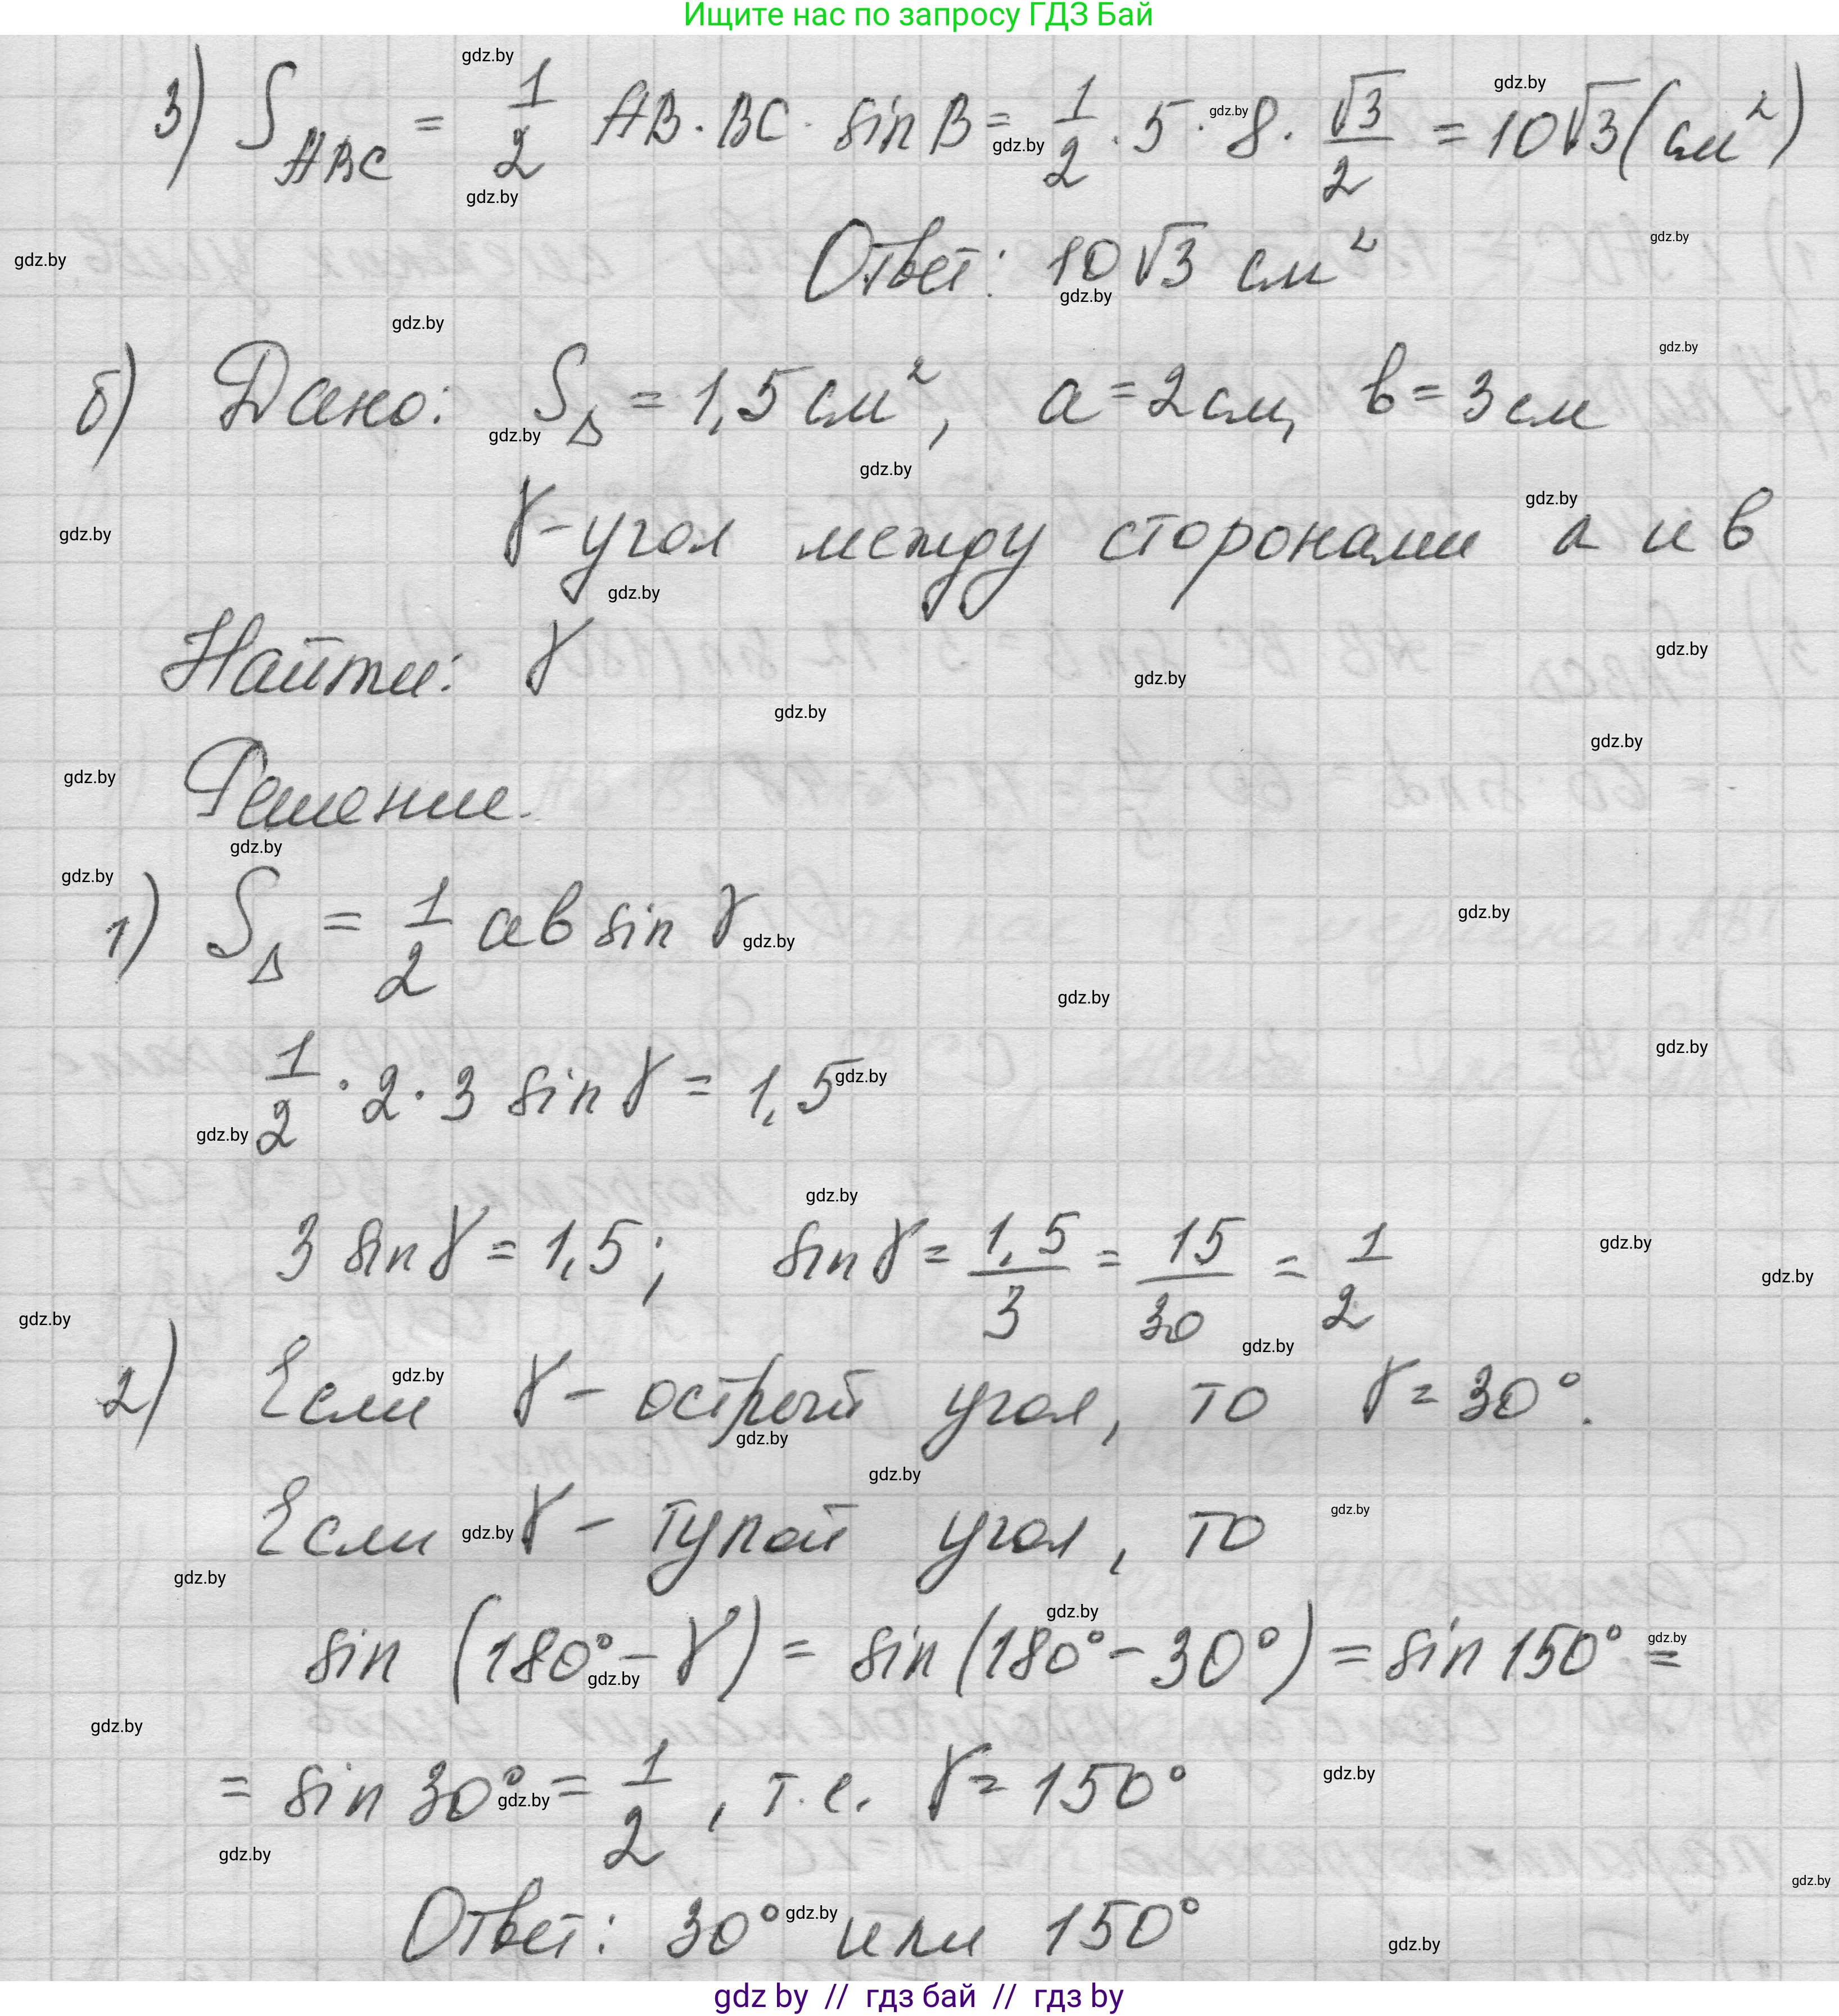 Ищите нас по запросу ГДЗ Бай
3) S ABC = 1/2 AB · BC · sin B = 1/2 · 5 · 8 · √3/2 = 10√3 (см²)
Ответ: 10√3 см²
б) Дано: S△ = 1,5 см², a = 2 см, в = 3 см
γ - угол между сторонами a и в
Найти: γ
Решение.
1) S△ = 1/2 aв sin γ
1/2 · 2 · 3 sin γ = 1,5
3 sin γ = 1,5; sin γ = 1,5/3 = 15/30 = 1/2
2) Если γ - острый угол, то γ = 30°.
Если γ - тупой угол, то
sin (180° - γ) = sin (180° - 30°) = sin 150° =
= sin 30° = 1/2, т.е. γ = 150°
Ответ: 30° или 150°
gdz by // гдз бай // гдз by